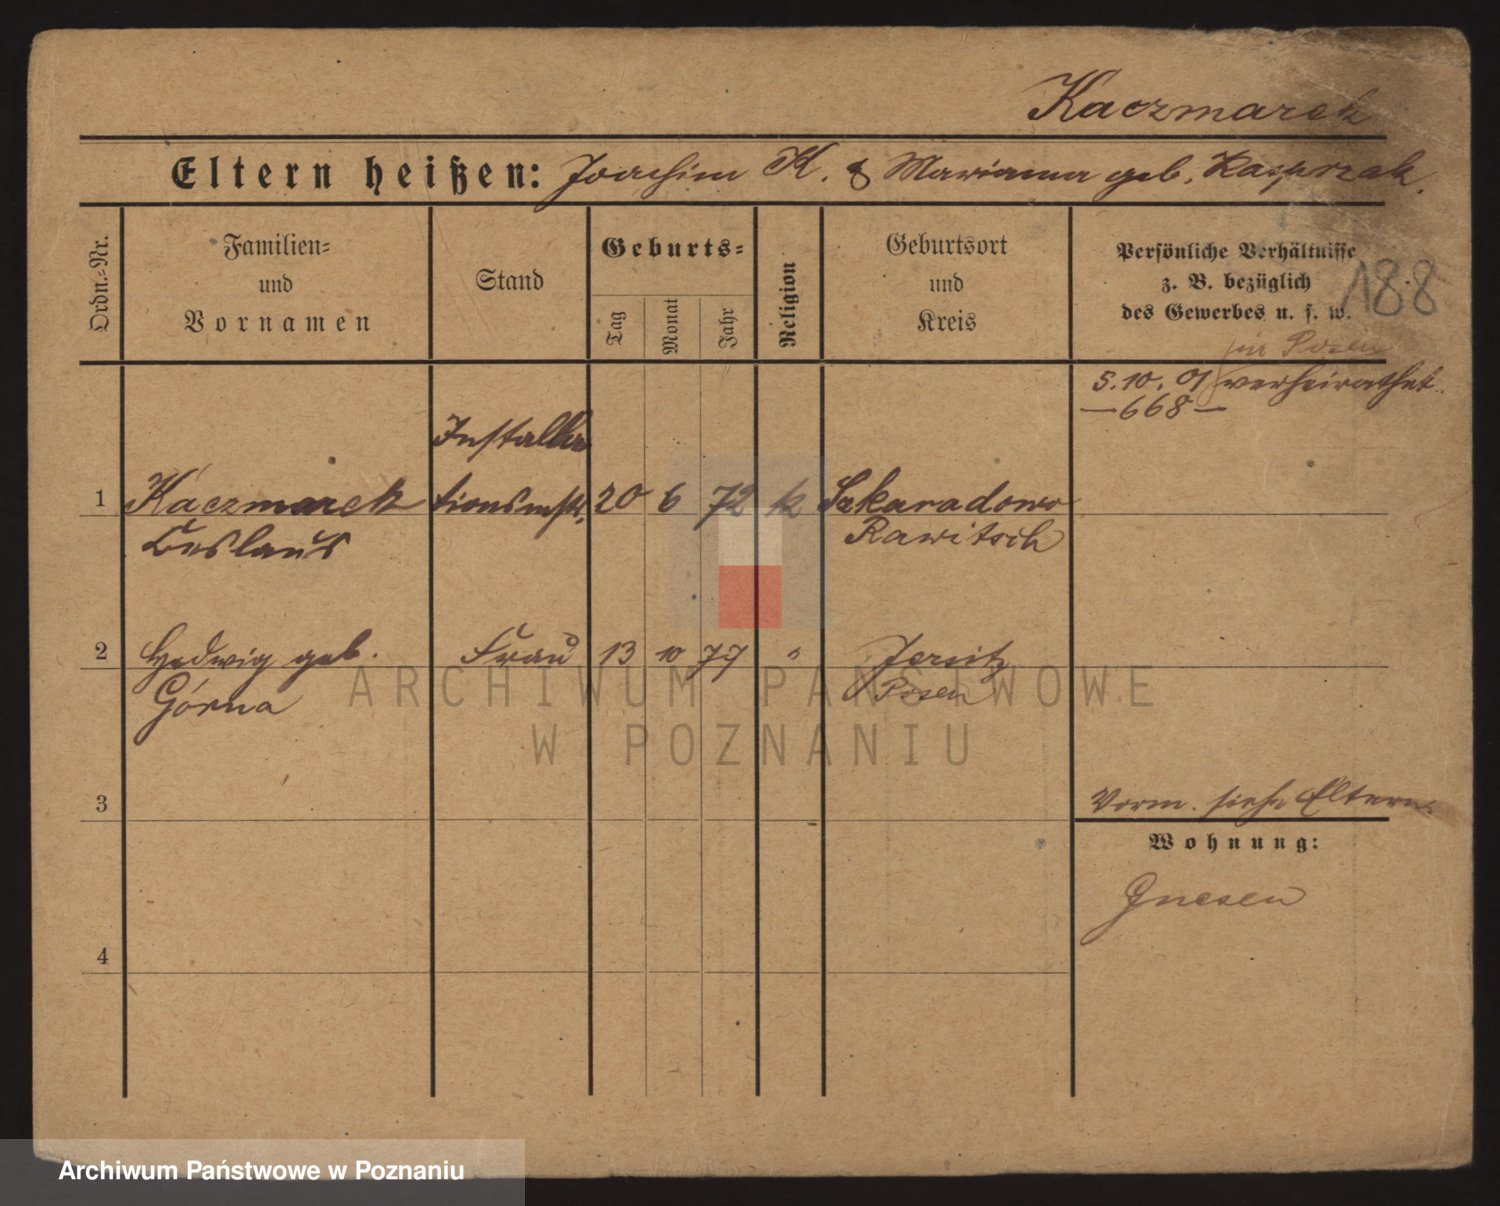 Kaczmarek
Eltern heißen: Joachim K. & Marianna geb. Kasprzak.
Ordn.-Nr.
Familien-
und
Vornamen
Stand
Geburts-
Tag
Monat
Jahr
Religion
Geburtsort
und
Kreis
Persönliche Verhältnisse
z. B. bezüglich
des Gewerbes u. s. w.
188
in Posen
5.10.01 verheirathet.
—668—
Installa
1 Kaczmarek tionsmstr. 20 6 72 k Szkaradowo
Ceslaus Rawitsch
2 Hedwig geb. Frau 13 10 77 " Jersitz
Górna Posen
ARCHIWUM PAŃSTWOWE
W POZNANIU
3
Vorm. siehe Eltern.
Wohnung:
Gnesen
4
Archiwum Państwowe w Poznaniu